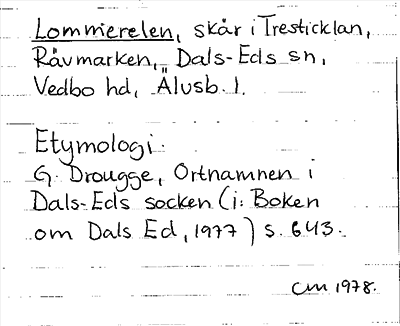 Lommierelen, skår i Tresticklan,
Råvmarken, Dals-Eds sn,
Vedbo hd, Älvsb. l.
Etymologi:
G. Drougge, Ortnamnen i
Dals-Eds socken (i: Boken
om Dals Ed, 1977) s. 643.
CM 1978.